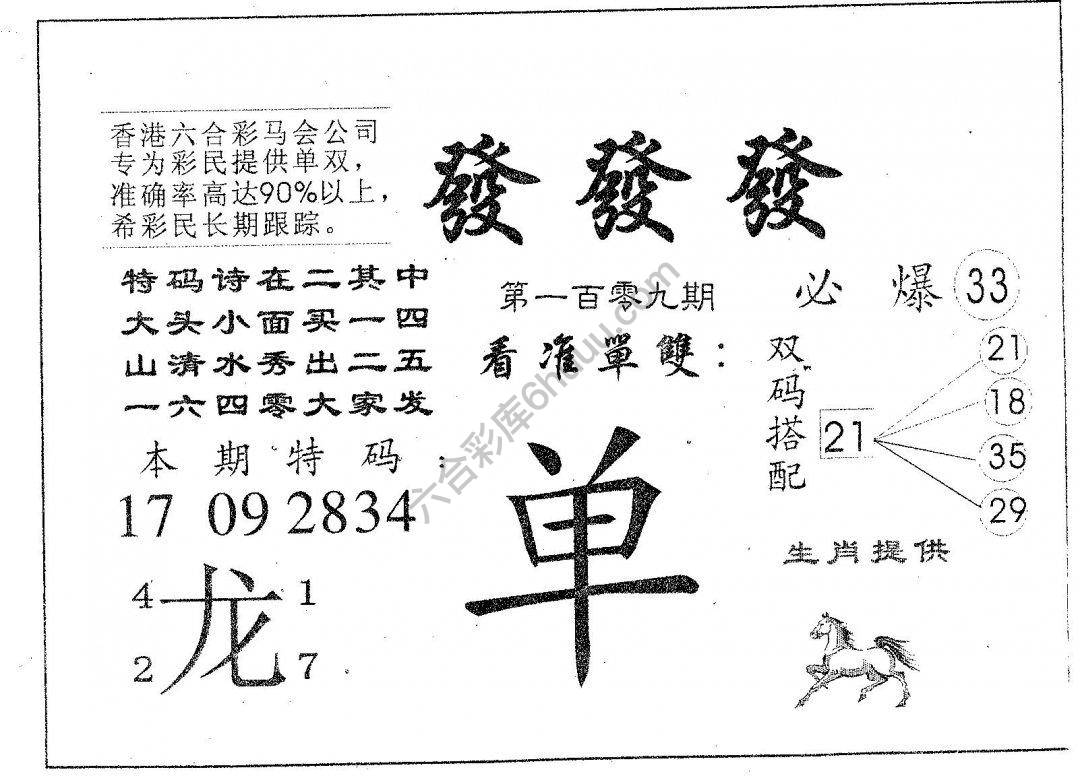 香港六合彩马会公司
专为彩民提供单双，
准确率高达90%以上，
希彩民长期跟踪。
發發發
特码诗在二其中
大头小面买一四
山清水秀出二五
一六四零大家发
第一百零九期
看准單雙：
单
必爆 33
双码搭配
21
21
18
35
29
本期特码：
17 09 28 34
4 1
龙
2 7
生肖提供
六合彩库6huuu.com